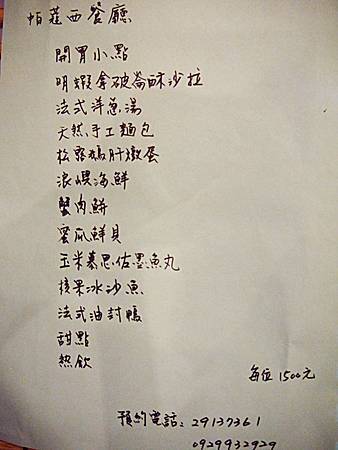 帕莛西餐廳
開胃小點
明蝦拿破崙酥沙拉
法式洋蔥湯
天然手工麵包
松露鵝肝燉蛋
浪漫海鮮
蟹肉餅
蜜瓜鮮貝
玉米慕思佐墨魚丸
蘋果冰沙魚
法式油封鴨
甜點
熱飲
每位1500元
預約電話:29137361
0929932929